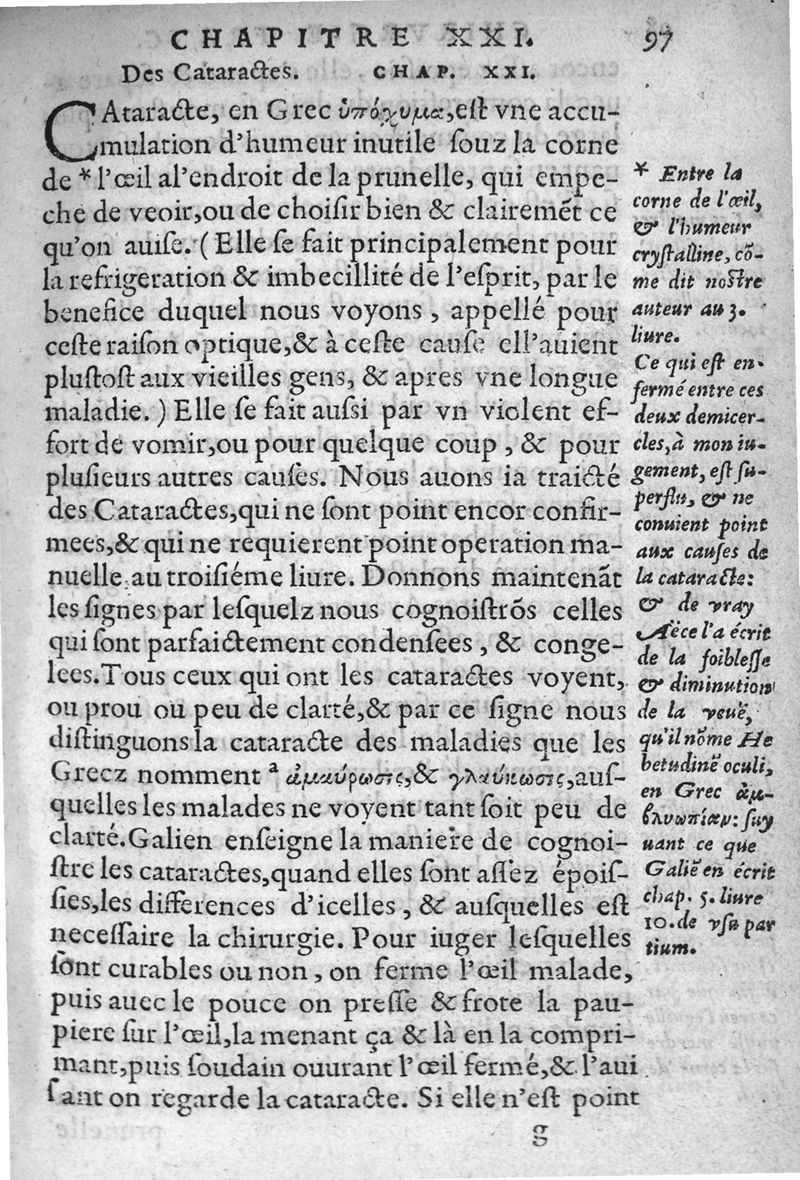 CHAPITRE XXI. 97
Des Cataractes. CHAP. XXI.
CAtaracte, en Grec ὑπόχυμα, eſt vne accu-
mulation d'humeur inutile ſouz la corne
de * l'œil al'endroit de la prunelle, qui empe-
che de veoir,ou de choiſir bien & clairemẽt ce
qu'on auiſe. (Elle ſe fait principalement pour
la refrigeration & imbecillité de l'eſprit, par le
benefice duquel nous voyons, appellé pour
ceſte raiſon optique,& à ceſte cauſe ell'auient
pluſtoſt aux vieilles gens, & apres vne longue
maladie.) Elle ſe fait auſsi par vn violent ef-
fort de vomir,ou pour quelque coup, & pour
pluſieurs autres cauſes. Nous auons ia traicté
des Cataractes,qui ne ſont point encor confir-
mees,& qui ne requierent point operation ma-
nuelle au troiſiéme liure. Donnons maintenãt
les ſignes par leſquelz nous cognoiſtrõs celles
qui ſont parfaictement condenſees, & conge-
lees.Tous ceux qui ont les cataractes voyent,
ou prou ou peu de clarté,& par ce ſigne nous
diſtinguons la cataracte des maladies que les
Grecz nomment ª ἀμαύρωσις,& γλαύκωσις,auſ-
quelles les malades ne voyent tant ſoit peu de
clarté.Galien enſeigne la maniere de cognoi-
ſtre les cataractes,quand elles ſont aſſez époiſ-
ſies,les differences d'icelles, & auſquelles eſt
neceſſaire la chirurgie. Pour iuger leſquelles
ſont curables ou non, on ferme l'œil malade,
puis auec le pouce on preſſe & frote la pau-
piere ſur l'œil,la menant ça & là en la compri-
mant,puis ſoudain ouurant l'œil fermé,& l'aui
ſant on regarde la cataracte. Si elle n'eſt point
g
* Entre la
corne de l'œil,
& l'humeur
cryſtalline, cõ-
me dit noſtre
auteur au 3.
liure.
Ce qui eſt en-
fermé entre ces
deux demicer-
cles,à mon iu-
gement, eſt ſu-
perflu, & ne
conuient point
aux cauſes de
la cataracte:
& de vray
Aëce l'a écrit
de la foibleſſe
& diminution
de la veuë,
qu'il nõme He
betudinẽ oculi,
en Grec ἀμ-
βλυωπίαν: ſuy
uant ce que
Galiẽ en écrit
chap. 5. liure
10. de vſu par
tium.